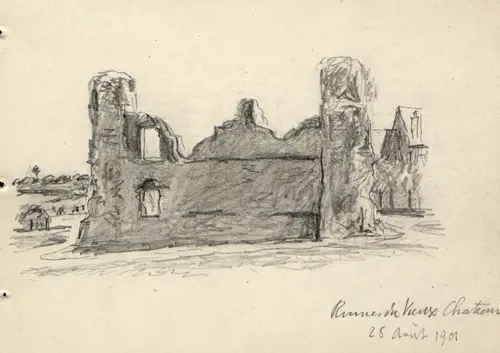 Ruines du Vieux Chateau
28 Août 1901